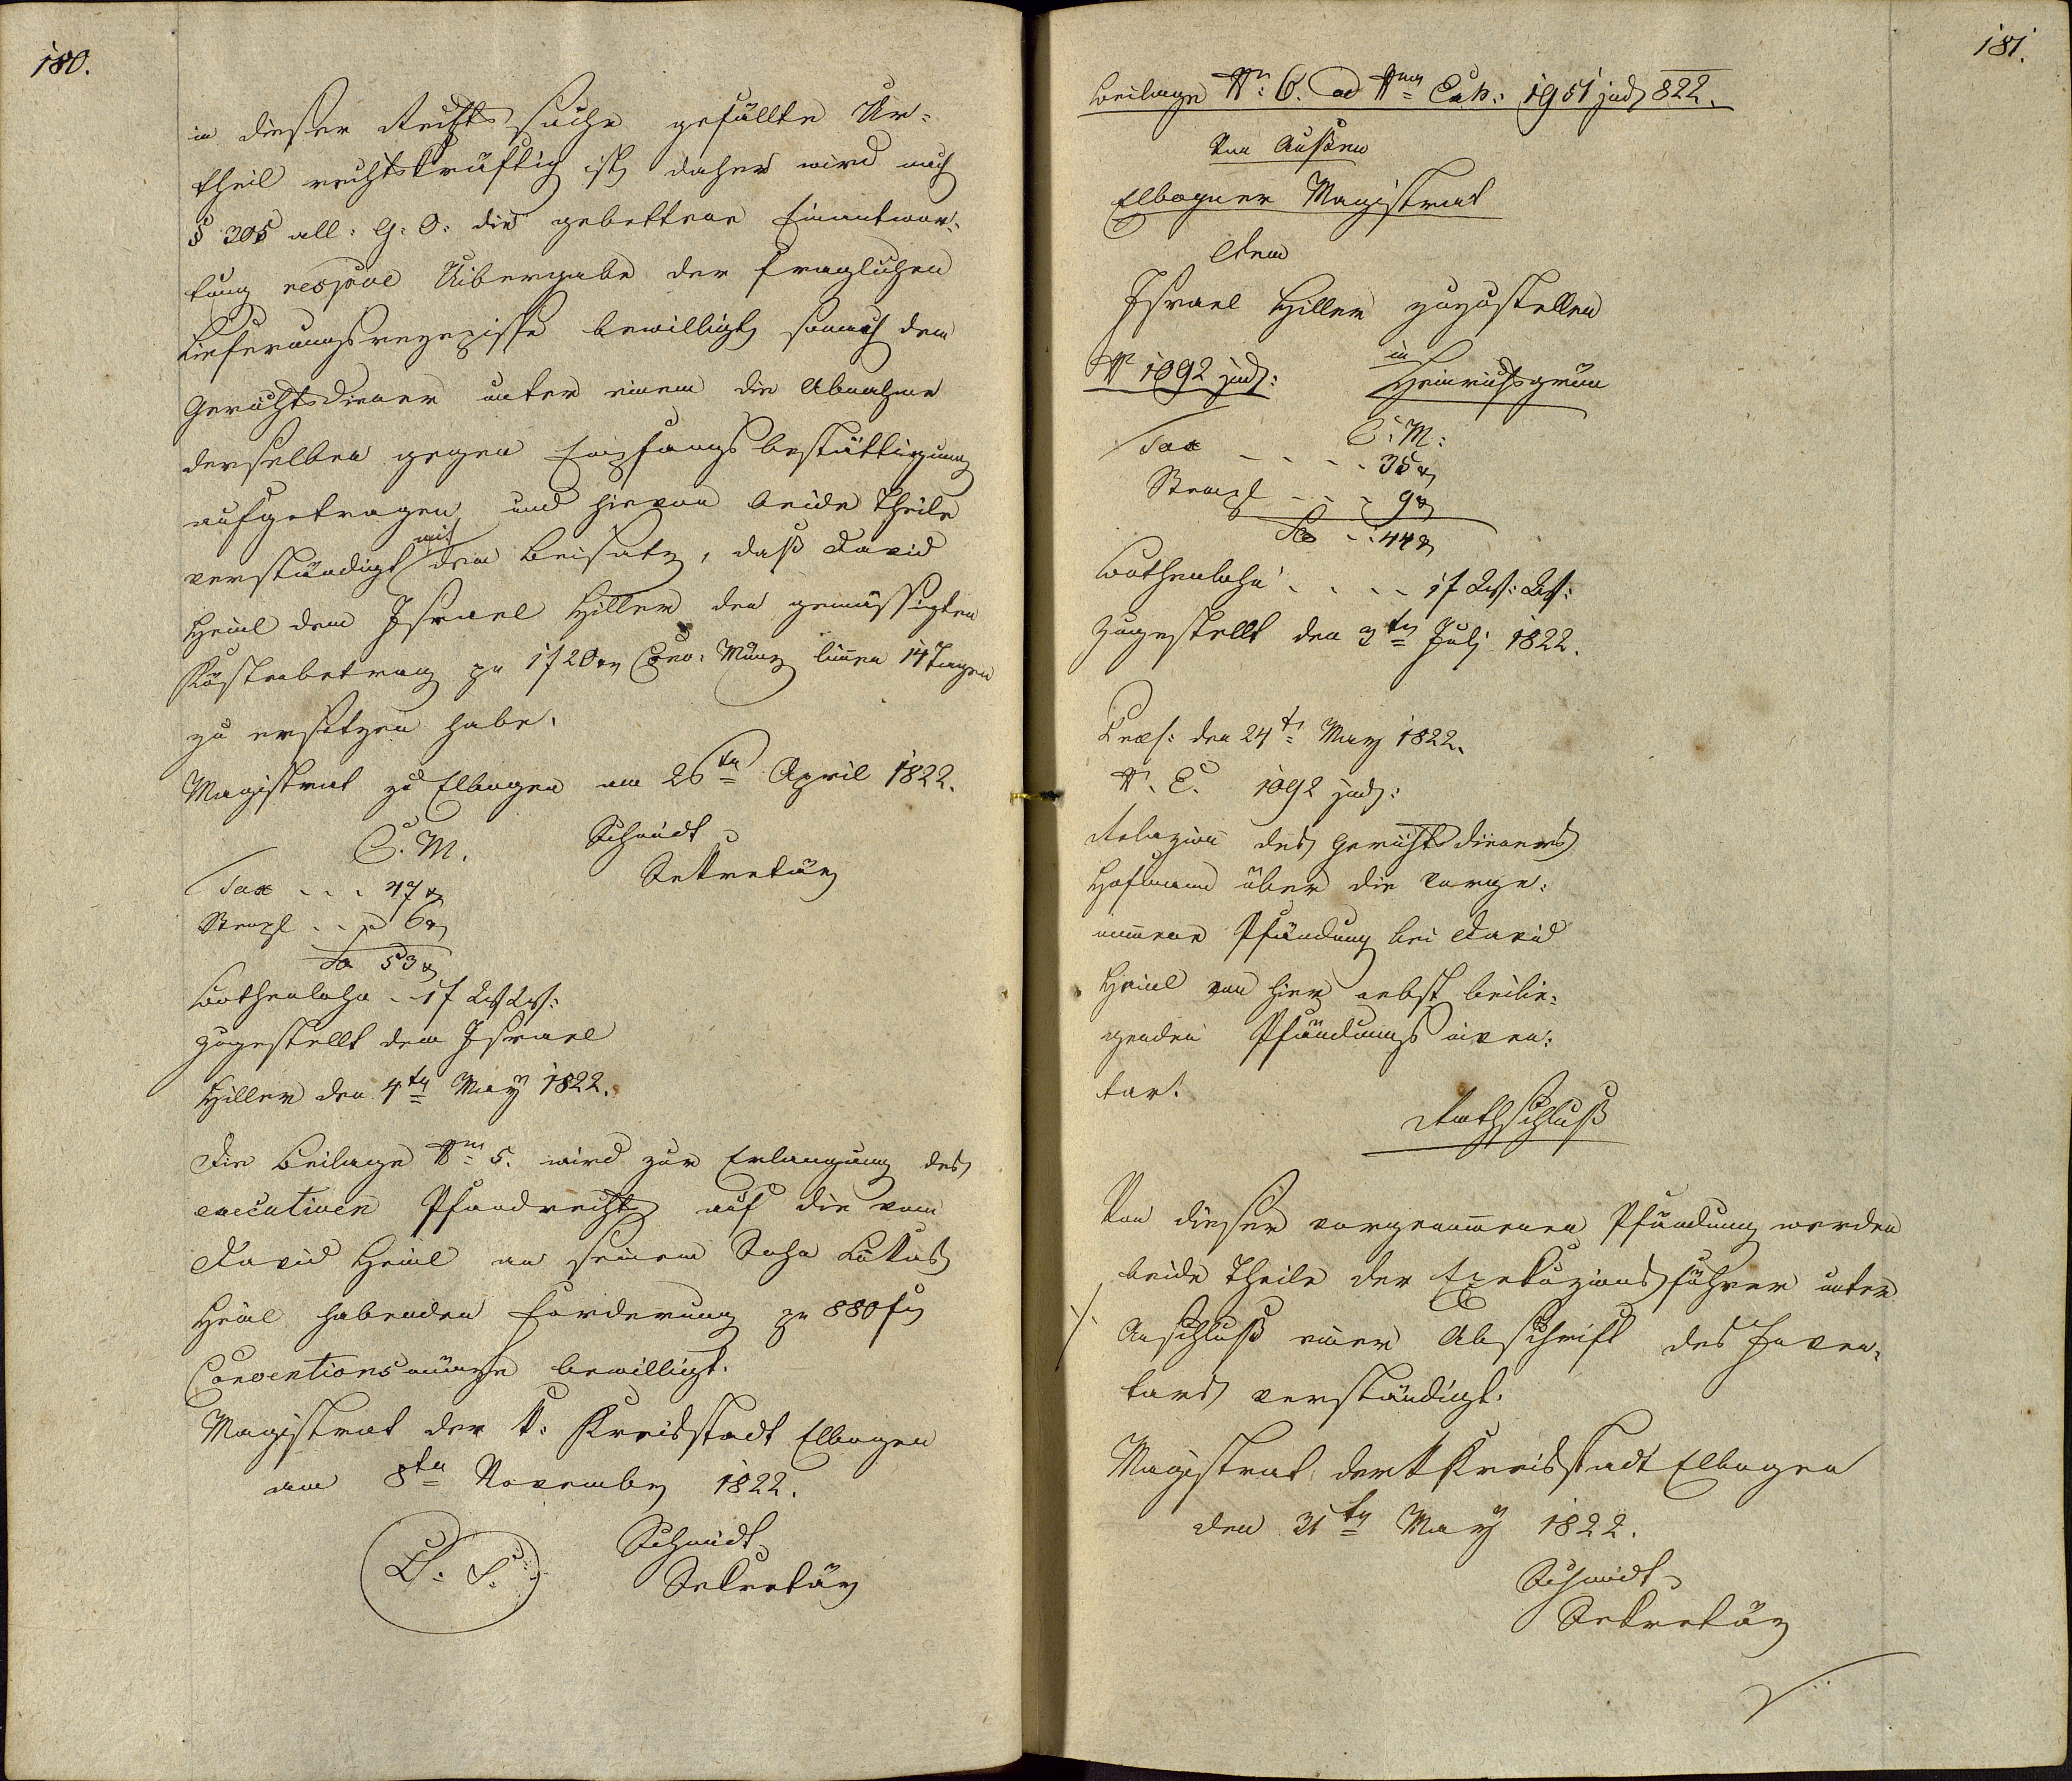 180.
in dieser Rechtssache gefällte Ur-
theil rechtskräftig ist, daher wird nach
§ 305 all: G: O: die gebettene Einantwor-
tung respve Uibergabe der fraglichen
Lieferungsrezepisse bewilligt, sonach dem
Gerichtsdiener unter einem die Abnahme
derselben gegen Empfangsbestättigung
aufgetragen, und hievon beide Theile
verständigt mit dem Beisatz, daß David
Heinl dem Israel Hiller den gemässigten
Kostenbetrag pr 1 f 20 xr Conv: Münz binnen 14 Tagen
zu ersetzen habe.
Magistrat zu Elbogen am 26ten April 1822.
C. M.
Schmidt
Sekretär
Tax - - - 47 xr
Stempl - - - 6 xr
Sa 53 xr
Bothenlohn - 1 f W W:
zugestellt dem Israel
Hiller den 4ten May 1822.
Die Beilage Nro 5. wird zur Erlangung des
executiven Pfandrechts auf die vom
David Heinl an seinem Sohn Lukas
Heinl habenden Forderung pr 880 fr
Conventionsmünze bewilligt.
Magistrat der k: Kreisstadt Elbogen
am 8ten November 1822.
L. S.
Schmidt
Sekretär
181.
Beilage Nro: 6. ad Nrum Exh: 1951 jud 822.
Von Außen
Elbogner Magistrat
Dem
Israel Hiller zuzustellen
in
N 1092 jud: Heinrichsgrün
C: M:
Tax - - - - 35 xr
Stempl - - - 9 xr
Sa - : 44 xr
Bothenlohn - - - - 1 f W: W:
zugestellt den 3ten Juli 1822.
Præs: den 24t May 1822.
N. E. 1092 jud:
Relazion des Gerichtsdieners
Hofmann über die vorge-
nommene Pfändung bei David
Heinl von hier nebst beilie-
genden Pfändungs inven-
tar.
Rathschluß
Von dieser vorgenommenen Pfändung werden
beide Theile der Exekuzionsführer unter
./. Anschluß einer Abschrift des Inven-
tars verständigt.
Magistrat der k Kreisstadt Elbogen
den 31ten May 1822.
Schmidt
Sekretär